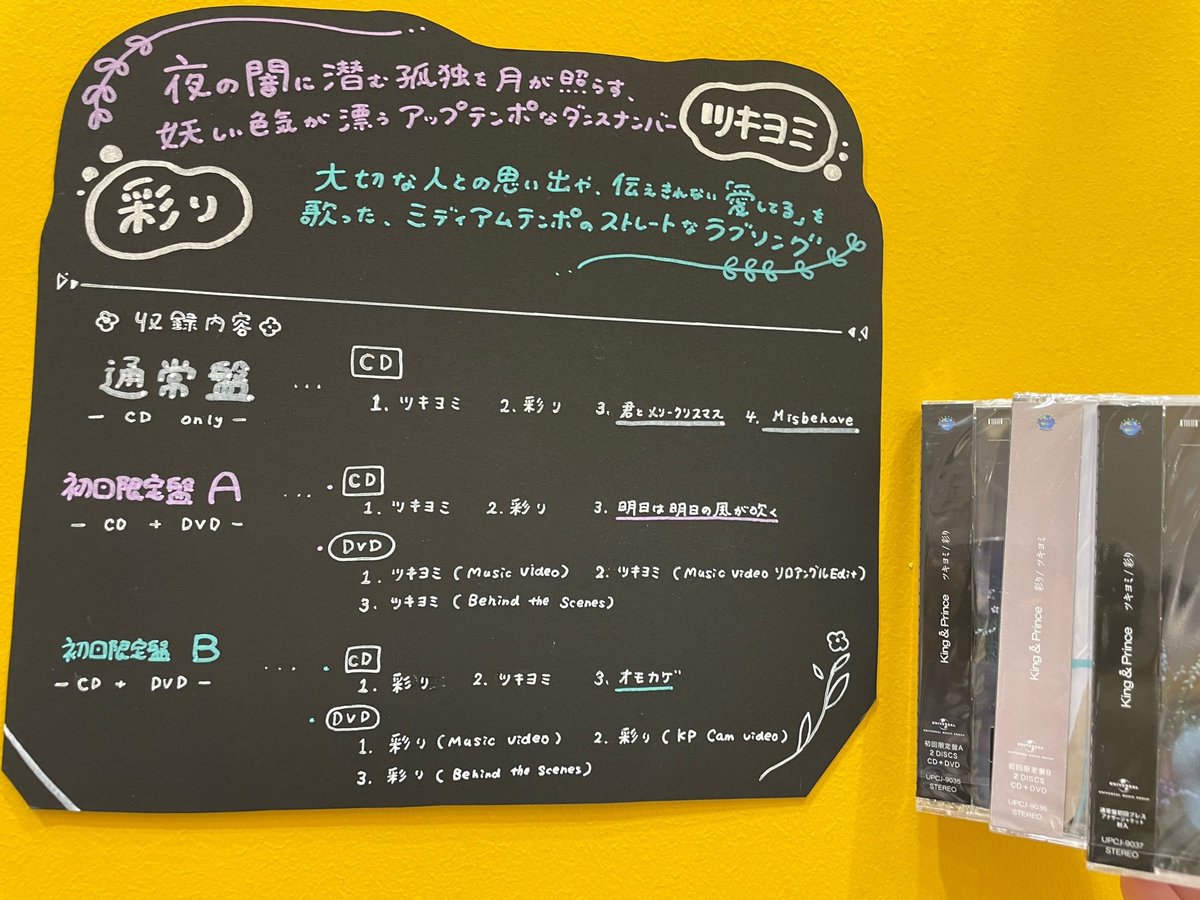 夜の闇に潜む孤独を月が照らす、
妖しい色気が漂うアップテンポなダンスナンバー
ツキヨミ
彩り
大切な人との思い出や、伝えきれない「愛してる」を
歌った、ミディアムテンポのストレートなラブソング
収録内容
通常盤
- CD only -
...
CD
1. ツキヨミ 2. 彩り 3. 君とメリークリスマス 4. Misbehave
初回限定盤 A
- CD + DVD -
....
・CD
1. ツキヨミ 2. 彩り 3. 明日は明日の風が吹く
・DVD
1. ツキヨミ (Music Video) 2. ツキヨミ (Music Video ソロアングルEdit)
3. ツキヨミ (Behind the Scenes)
初回限定盤 B
- CD + DVD -
....
・CD
1. 彩り 2. ツキヨミ 3. オモカゲ
・DVD
1. 彩り (Music Video) 2. 彩り (KP Cam video)
3. 彩り (Behind the Scenes)
King & Prince ツキヨミ/彩り
UNIVERSAL
初回限定盤A
2 DISCS
CD+DVD
UPCJ-9035
STEREO
King & Prince 彩り/ツキヨミ
UNIVERSAL
UNIVERSAL MUSIC GROUP
初回限定盤B
2 DISCS
CD+DVD
UPCJ-9036
STEREO
King & Prince ツキヨミ/彩り
UNIVERSAL
UNIVERSAL MUSIC GROUP
通常盤初回プレス
アナザージャケット
封入
UPCJ-9037
STEREO